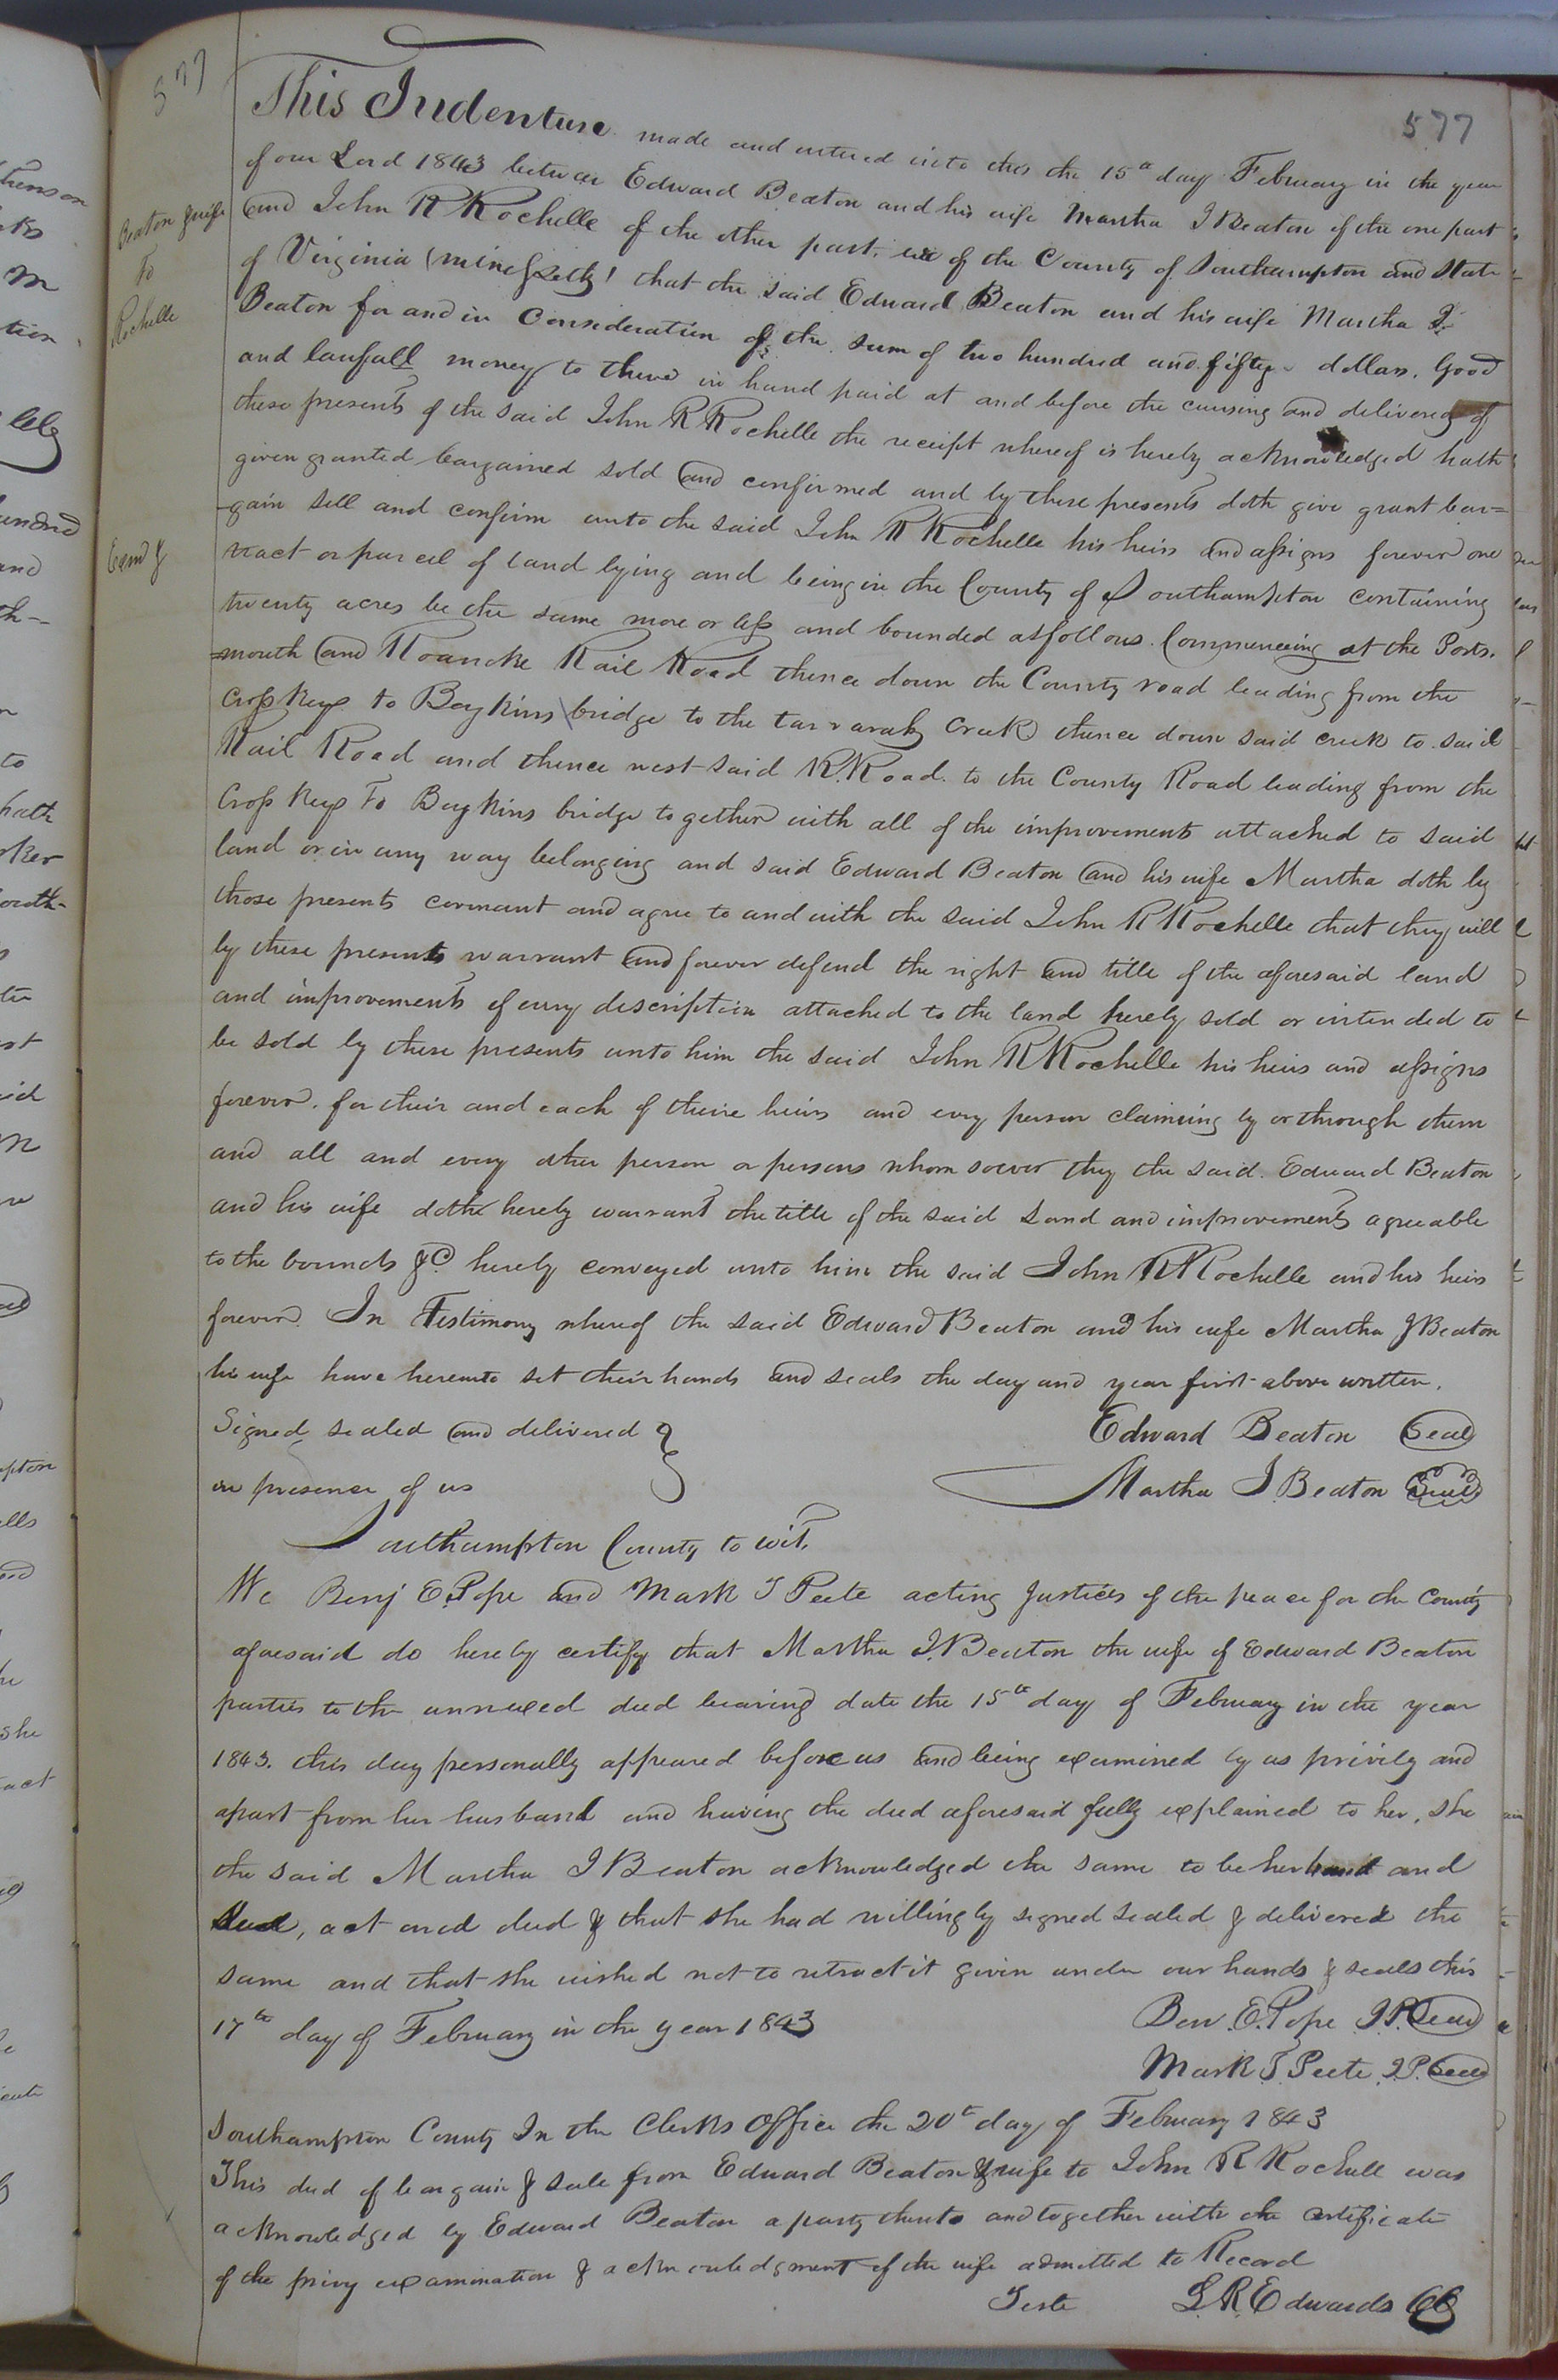 577
577
This Indenture made and entered into this the 15th day February in the year
of our Lord 1843 between Edward Beaton and his wife Martha J Beaton of the one part
Beaton & wife
To
Rochelle
and John R Rochelle of the other part. all of the County of Southampton and State
of Virginia (Witnesseth) that the said Edward Beaton and his wife Martha J.
Beaton for and in Consideration of the sum of two hundred and fifty dollars. Good
and laufull money to them in hand paid at and before the ensuing and delivery of
these presents of the said John R Rochelle the receipt whereof is hereby acknowledged hath
given granted bargained sold and confirmed and by these presents doth give grant bar=
-gain sell and confirm unto the said John R Rochelle his heirs and assigns forever one
Exmd &
tract or parcel of land lying and being in the County of Southampton containing
twenty acres be the same more or less and bounded as follows. Commencing at the Ports.
=mouth and Roanoke Rail Road thence down the County road leading from the
Cross Keys to Boykins bridge to the tarrarah Creek thence down said creek to said
Rail Road and thence west said R.Road. to the County Road leading from the
Cross Keys To Boykins bridge together with all of the improvements attached to said
land or in any way belonging and said Edward Beaton and his wife Martha doth by
those presents covenant and agree to and with the said John R Rochelle that they will
by these presents warrant and forever defend the right and title of the aforesaid land
and improvements of every description attached to the land hereby sold or intended to
be sold by these presents unto him the said John R Rochelle his heirs and assigns
forever. for their and each of theire heirs and every person claiming by or through them
and all and every other person or persons whomsoever they the said. Edward Beaton
and his wife doth hereby warrant the title of the said Land and improvements agreeable
to the bounds &C. hereby conveyed unto him the said John R Rochelle and his heirs
forever. In Testimony whereof the said Edward Beaton and his wife Martha J Beaton
his wife have hereunto set their hands and seals the day and year first above written.
Signed sealed and delivered } Edward Beaton Seal
in presence of us Martha J. Beaton Seal
Southampton County to wit,
We Benj E. Pope and Mark T Peete acting Justices of the peace for the County
aforesaid do hereby certify that Martha J. Beaton the wife of Edward Beaton
parties to the annexed deed bearing date the 15th day of February in the year
1843. this day personally appeared before us and being examined by us privily and
apart from her husband and having the deed aforesaid fully explained to her, she
the said Martha J Beaton acknowledged the same to be her hand and
Seal, act and deed & that she had willingly signed sealed & delivered the
same and that she wished not to retract it given under our hands & seals this
17th day of February in the year 1843 Ben. E. Pope J.P. Seal
Mark T. Peete J.P. Seal
Southampton County In the Clerks Office the 20th day of February 1843
This deed of bargain & sale from Edward Beaton & wife to John R Rochell was
acknowledged by Edward Beaton a party thereto and together with the certificate
of the privy examination & acknowledgment of the wife admitted to Record
Teste L. R. Edwards CC